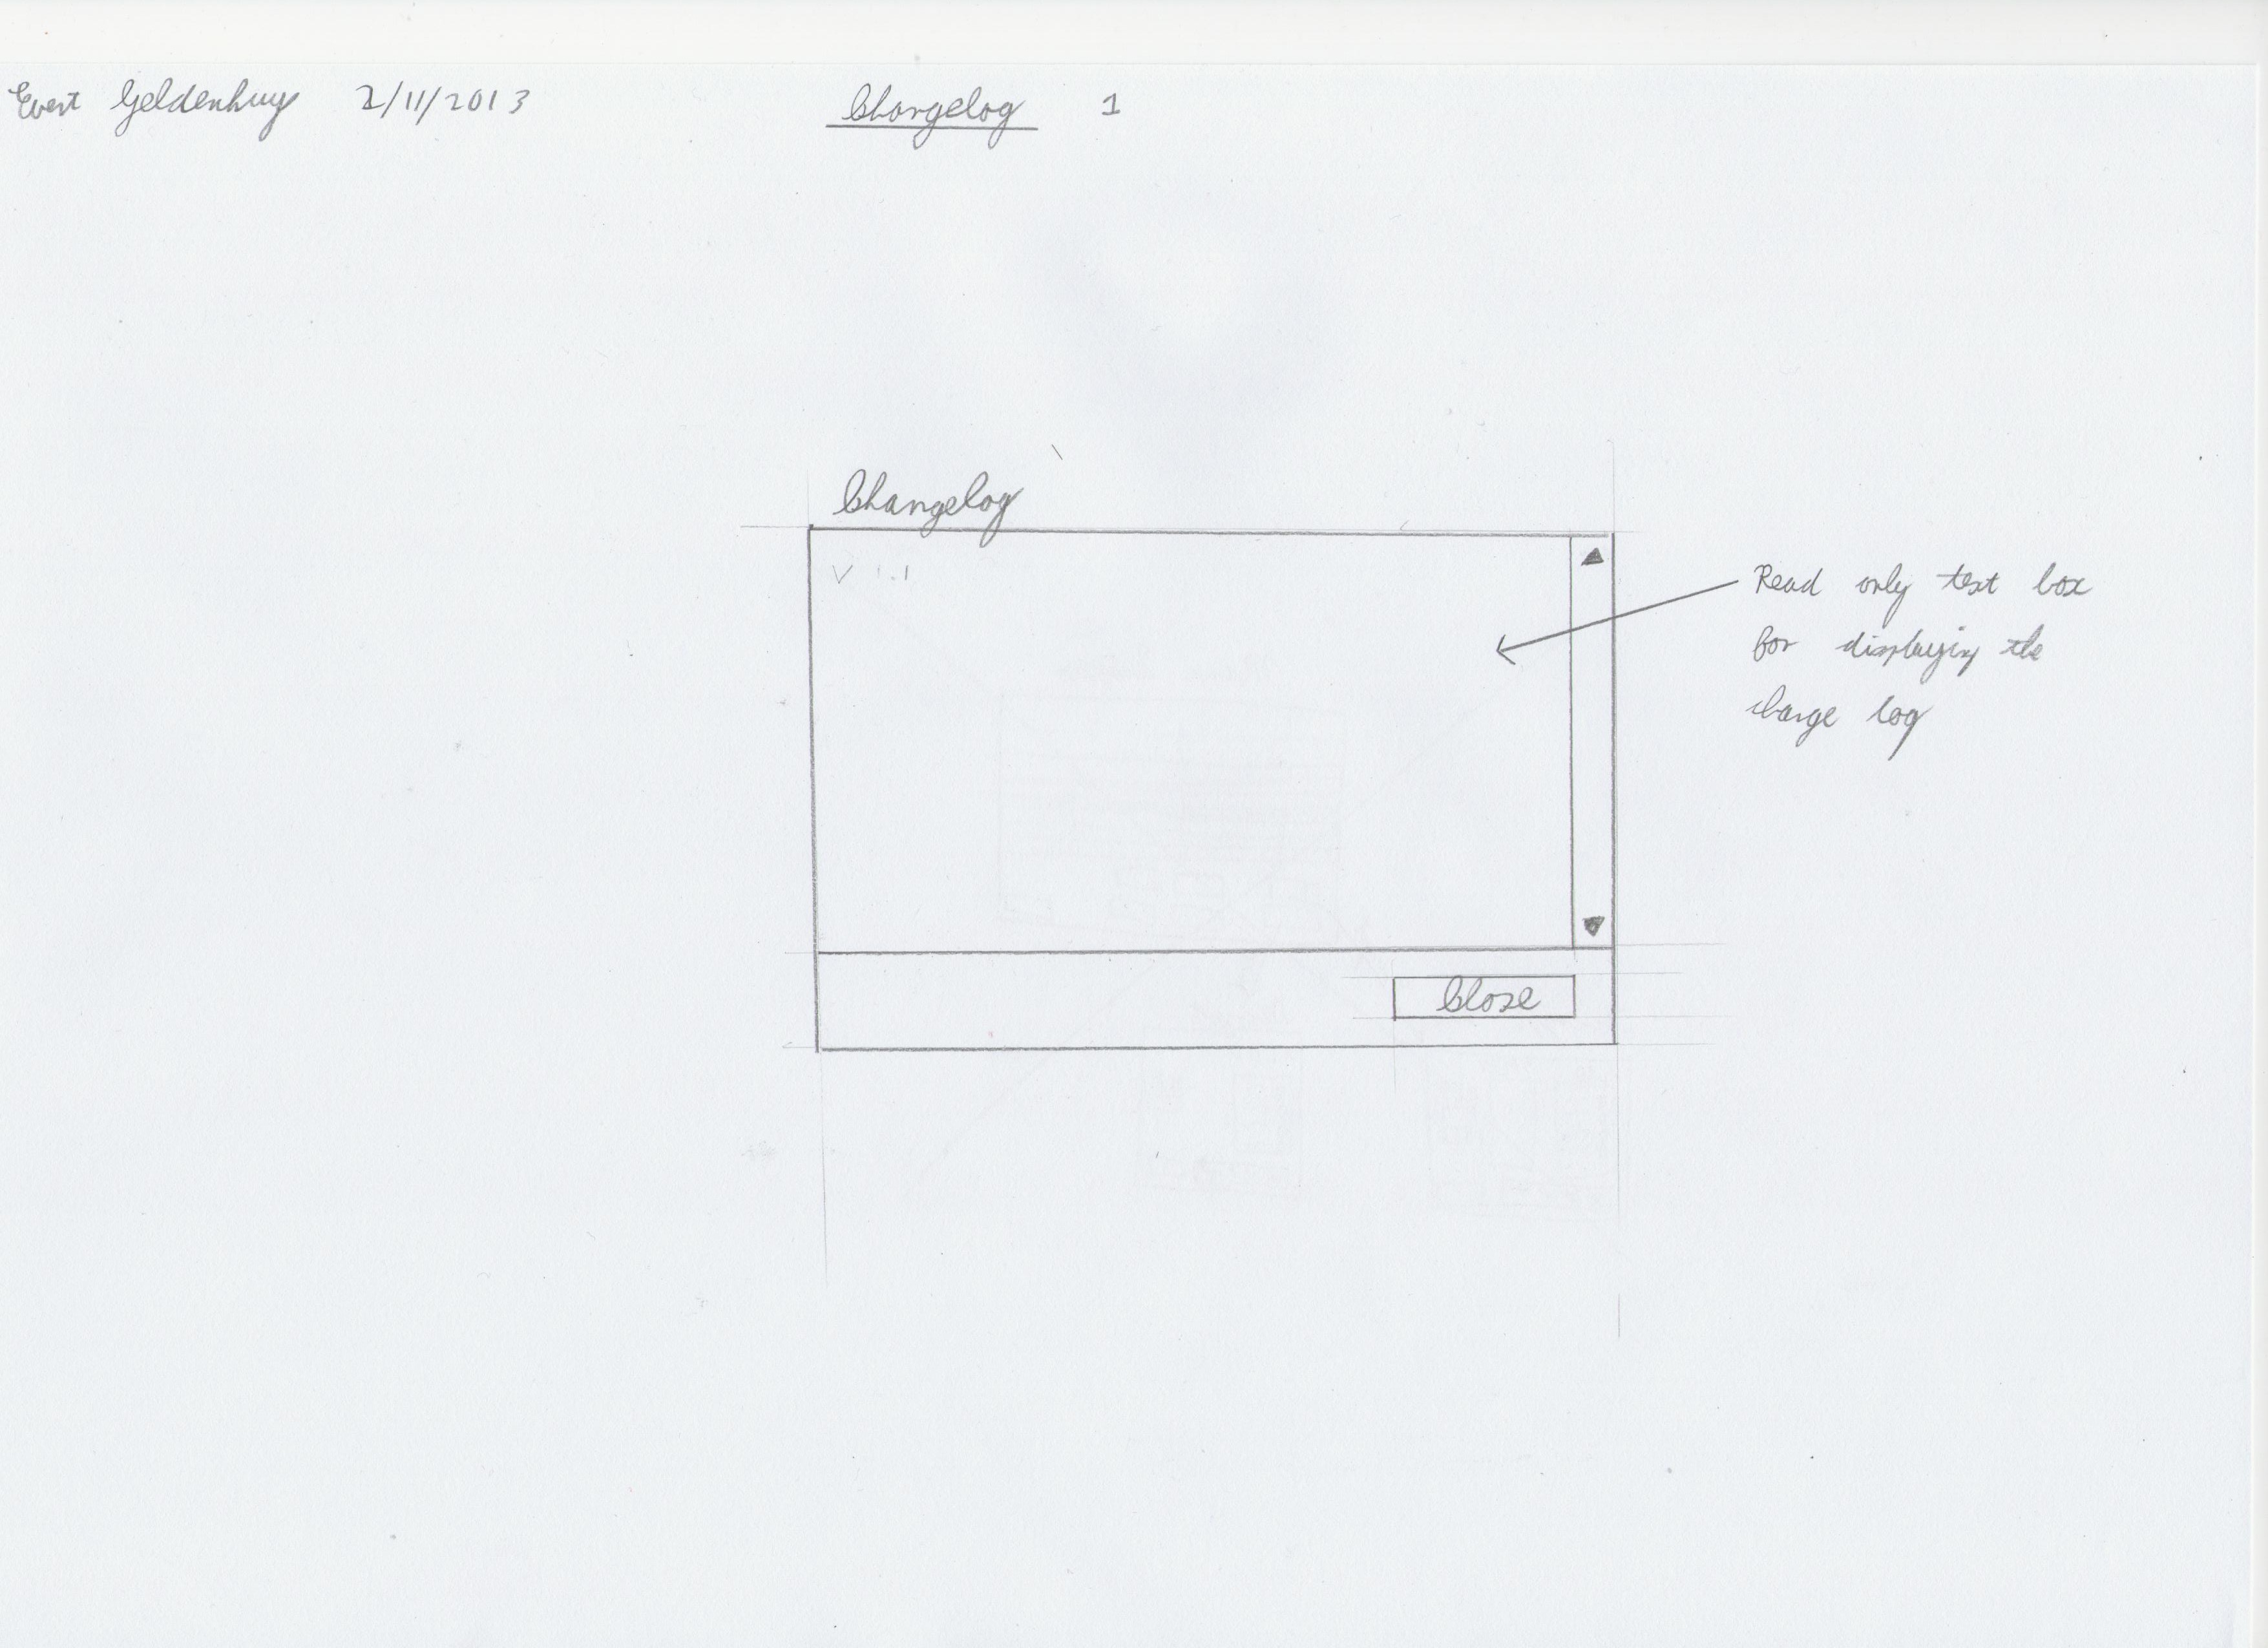 Evert Geldenhuys 2/11/2013
Changelog 1
Changelog
V 1.1
Read only text box
for displaying the
change log
Close